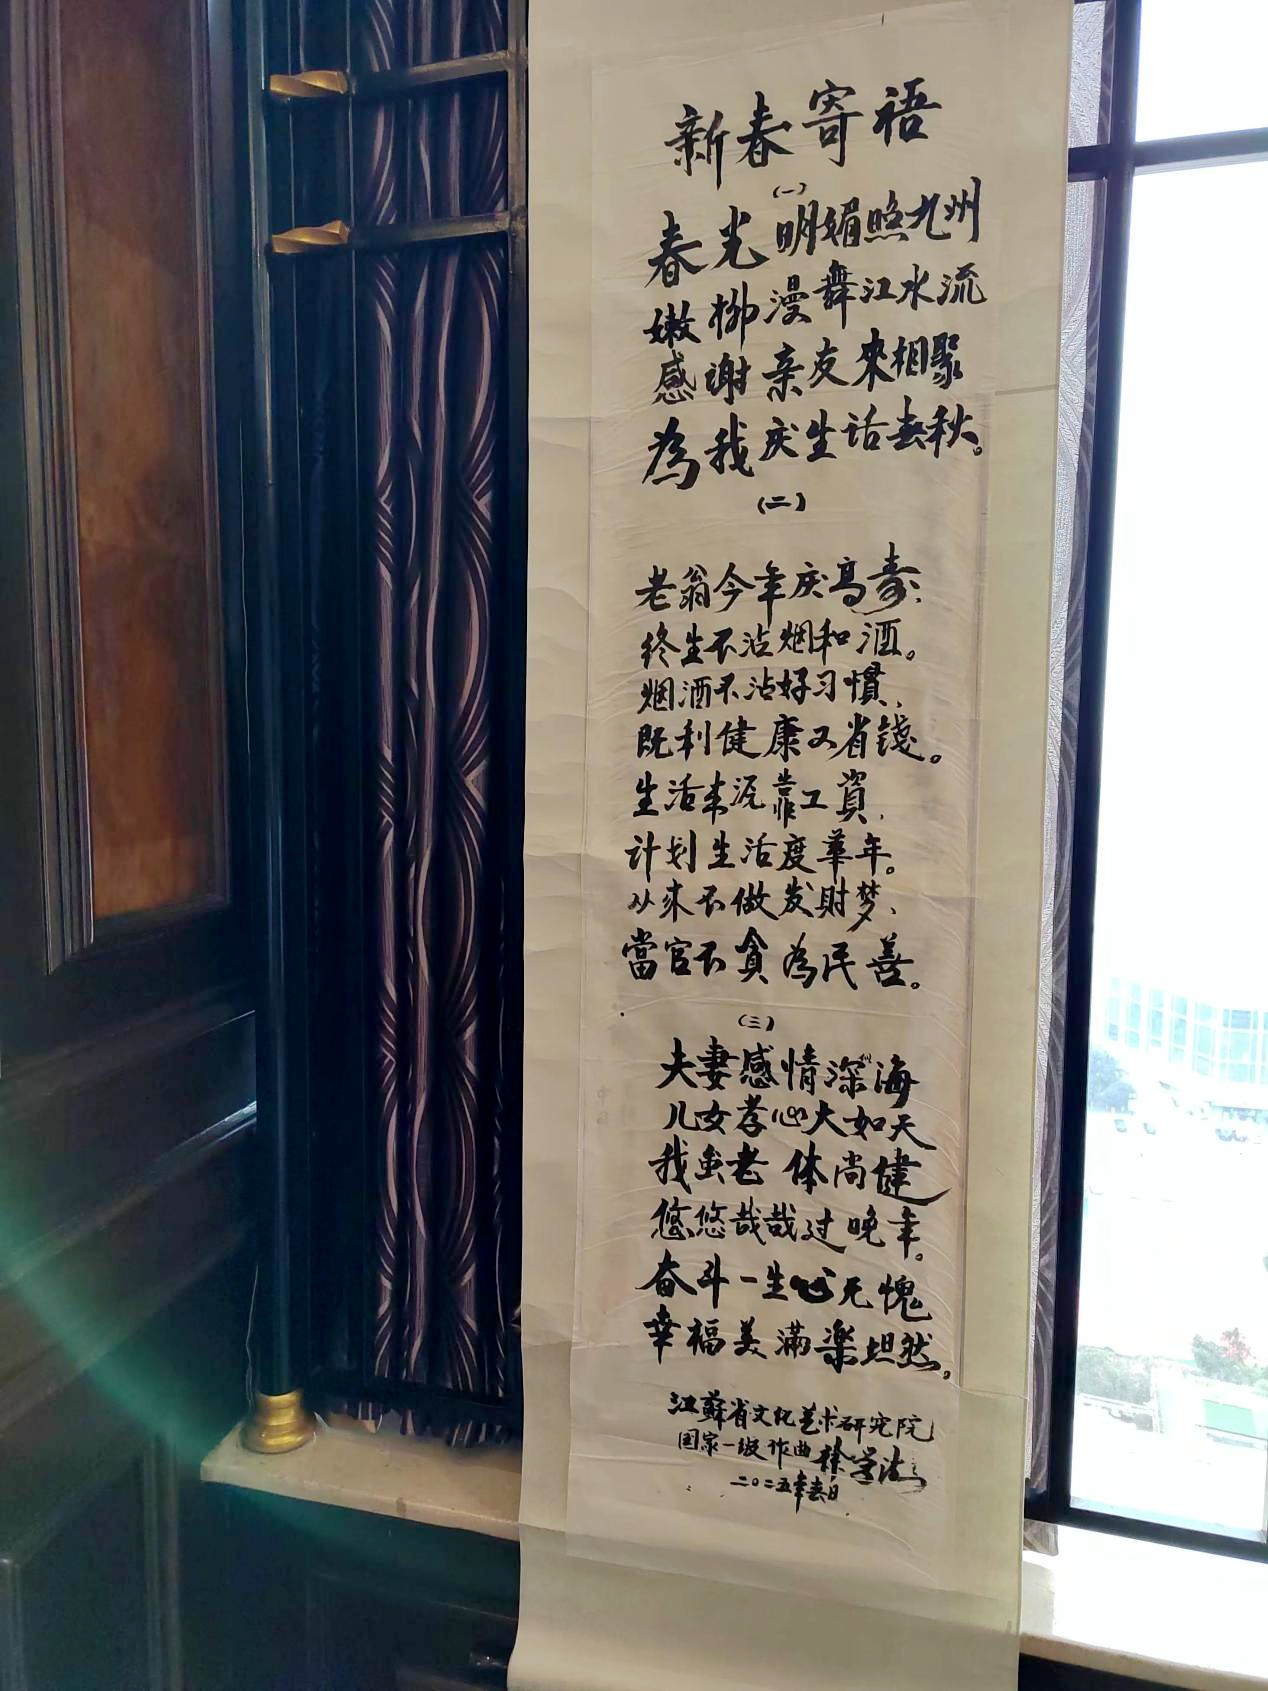 新春寄语
(一)
春光明媚照九州
嫩柳漫舞江水流
感谢亲友來相聚
為我庆生话春秋。
(二)
老翁今年庆高寿,
终生不沾烟和酒。
烟酒不沾好习慣,
既利健康又省錢。
生活来源靠工資,
计划生活度華年。
从来不做发財梦、
當官不貪為民善。
(三)
夫妻感情深似海
儿女孝心大如天
我虽老 体尚健
悠悠哉哉过晚年。
奋斗一生心无愧
幸福美满楽坦然。
江蘇省文化艺术研究院
国家一级作曲 徐学法
二〇二五年春日